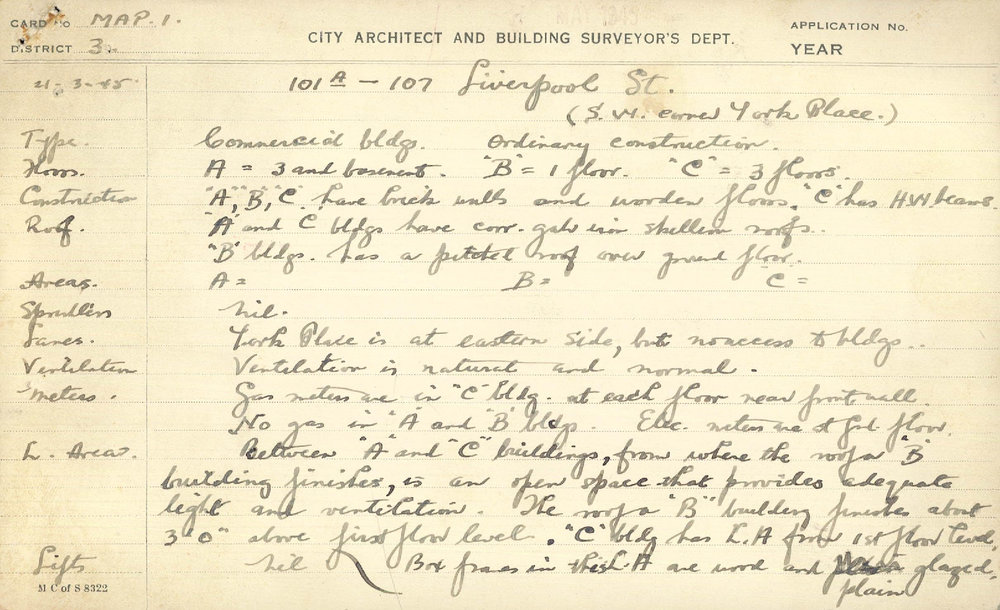 CARD No MAP. 1.
DISTRICT 3.
CITY ARCHITECT AND BUILDING SURVEYOR'S DEPT.
APPLICATION No.
YEAR
21-3-45 101A - 107 Liverpool St.
(S.W. corner York Place.)
Type. Commercial bldgs. Ordinary construction.
Floors. A = 3 and basement. "B" = 1 floor. "C" = 3 floors.
Construction "A", "B", "C" have brick walls and wooden floors. "C" has H.W. beams.
Roof. "A" and C bldgs have corr. galv iron skillion roofs.
"B" bldgs. has a pitched roof over ground floor.
Areas. A = B = C =
Sprinklers Nil.
Lanes. York Place is at eastern side, but no access to bldgs..
Ventilation Ventilation is natural and normal.
Meters. Gas meters are in "C" bldg. at each floor near front wall.
No gas in "A" and "B" bldgs. Elec. meters are at Grd floor.
L. Areas. Between "A" and "C" buildings, from where the roof of "B"
building finishes, is an open space that provides adequate
light and ventilation. The roof of "B" building finishes about
3'-0" above first floor level. "C" bldg has L.A from 1st floor level,
Lifts Nil Box frames in this L.A are wood and glazed,
plain
M C of S 8322